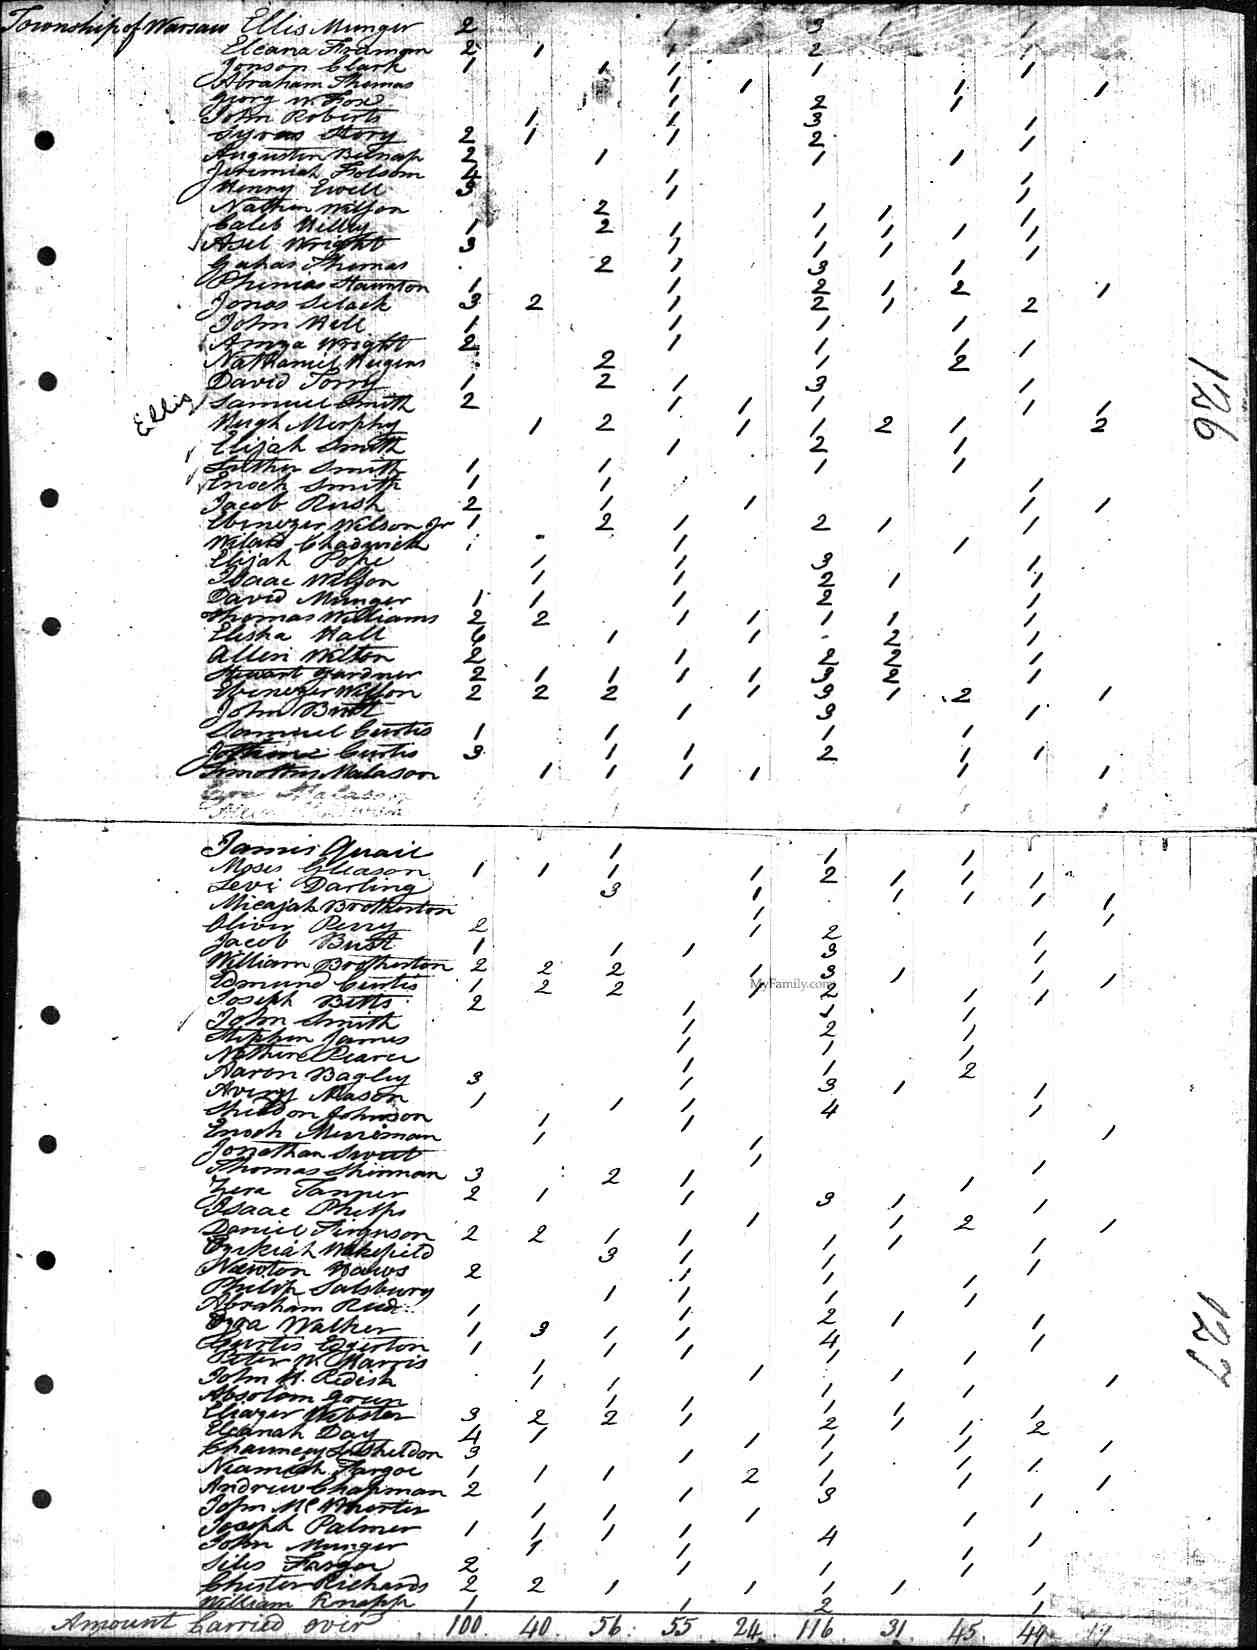 Township of Warsaw Ellis Munger 2 1 3 1 1
2 1 1 2 1
Jonson Clark 1 1 1 1 1
Abraham Thomas 1 1 1 1
Georg W. Fox 1 2 1
John Roberts 1 1 3 1
Syras Story 2 1 1 2 1
Augustin Belnap 2 1 1 1
Jeremiah Folsom 4 1
Henry Ewell 3 1 1
Nathan Wilson 2 1 1 1
Caleb Willey 1 2 1 1 1 1 1
Asel Wright 3 1 1 1 1
Thomas 2 1 3 1
Phinias Stawnton 1 1 2 1 2 1
Jonas 3 2 1 2 1 2
John Hill 1 1 1 1
Amza Wright 2 1 1 1 1
Nathaniel 2 1 2
David Torry 1 2 1 3 1
Ellis
Samuel Smith 2 1 1 1 1 1
Hugh Murphy 1 2 1 1 2 1 2
126
Elijah Smith 1 2 1
Luther Smith 1 1 1 1
Enoch Smith 1 1 1
Jacob Rush 2 1 1 1 1
Ebenezer Wilson Jr 1 2 1 2 1 1
Wilard Chadwick 1 1
Elijah Pope 1 1 3 1
Isaac Wilson 1 1 2 1 1
David Munger 1 1 1 2 1
Thomas Williams 2 2 1 1 1 1 1
Elisha Hall 6 1 1 2 1
Allen Wilton 2 1 2 2 1
Stewart Gardner 2 1 1 1 1 3 2 1
Ebenezer Wilson 2 2 2 1 3 1 2 1
John Butt 1 3 1
Samuel Curtis 1 1 1 1
Curtis 3 1 1 2 1 1
Timothy Malason 1 1 1 1 1 1
Malason
James Quail 1 1 1
Moses Gleason 1 1 1 1 2 1 1 1
Levi Darling 3 1 1 1 1 1
Micajah Brotherton 1 1
Oliver Perry 2 1 2
Jacob Butt 1 1 1 3 1
William Brotherton 2 2 2 1 3 1 1 1
MyFamily.com
Edmund Curtis 1 2 2 1 2 1 1
Joseph Betts 2 1 1
John Smith 1 2 1
Stephen James 1 1 1
Nathan Pearce 1 1 2
Aaron Bagley 3 1 3 1 1
Avery Mason 1 1 1 4 1
Sheldon Johnson 1 1
Enoch Merriman 1 1 1
Jonathan Sweet 1
Thomas Shirman 3 2 1 1
Zera Tanner 2 1 1 3 1 1
Isaac Phelps 1 1 2 1
Daniel Ferguson 2 2 1 1 1 1 1
Ezekiah Wakefield 3 1 1 1
Newton Hawes 2 1 1 1
Philip Salsbury 1 1 1 1
127
Abraham Reed 1 1 2 1 1
Ezra Walker 1 3 1 1 4 1
Curtis Edgerton 1 1 1 1 1
Peter W. Harris 1
John H. Redish 1 1 1 1 1
Absolom Green 1 1 1
Eleazer Webster 3 2 2 1 2 1 1
Elcanah Day 4 1 1 1 1 2
Chauncey L Sheldon 3 1 1 1 1
Neamiah Fargoe 1 1 1 2 1 1 1
Andrew Chapman 2 1 3 1
John McWhorter 1 1 1 1
Joseph Palmer 1 1 1 1 4 1
John Munger 1 1 1
Siles Fargo 2 1 1 1
Chester Richards 2 2 1 1 1 1 1
William Knapp 1 1 2 1
Amount Carried over 100. 40. 56. 55. 24. 116. 31. 45. 49. 19